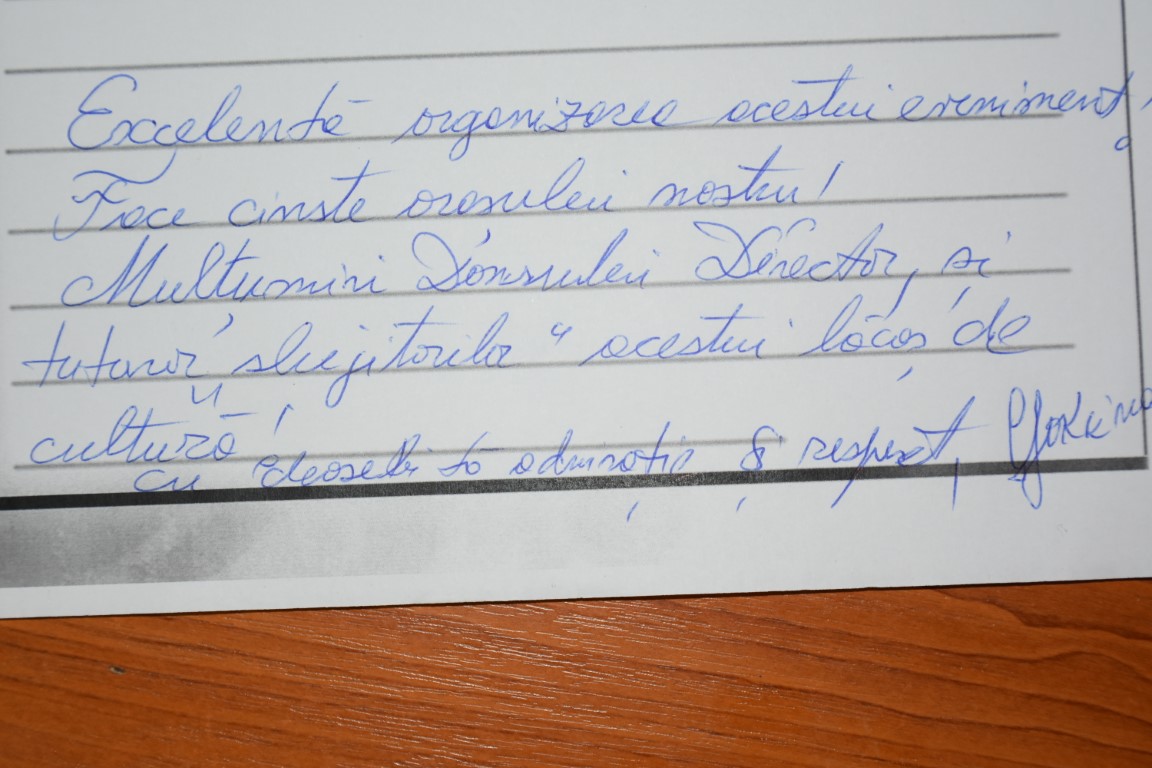 Excelentă organizarea acestui eveniment,
Face cinste orașului nostru!
Mulțumiri Domnului Director, și
tuturor „slujitorilor“ acestui lăcaș de
cultură!
cu deosebită admirație și respect,